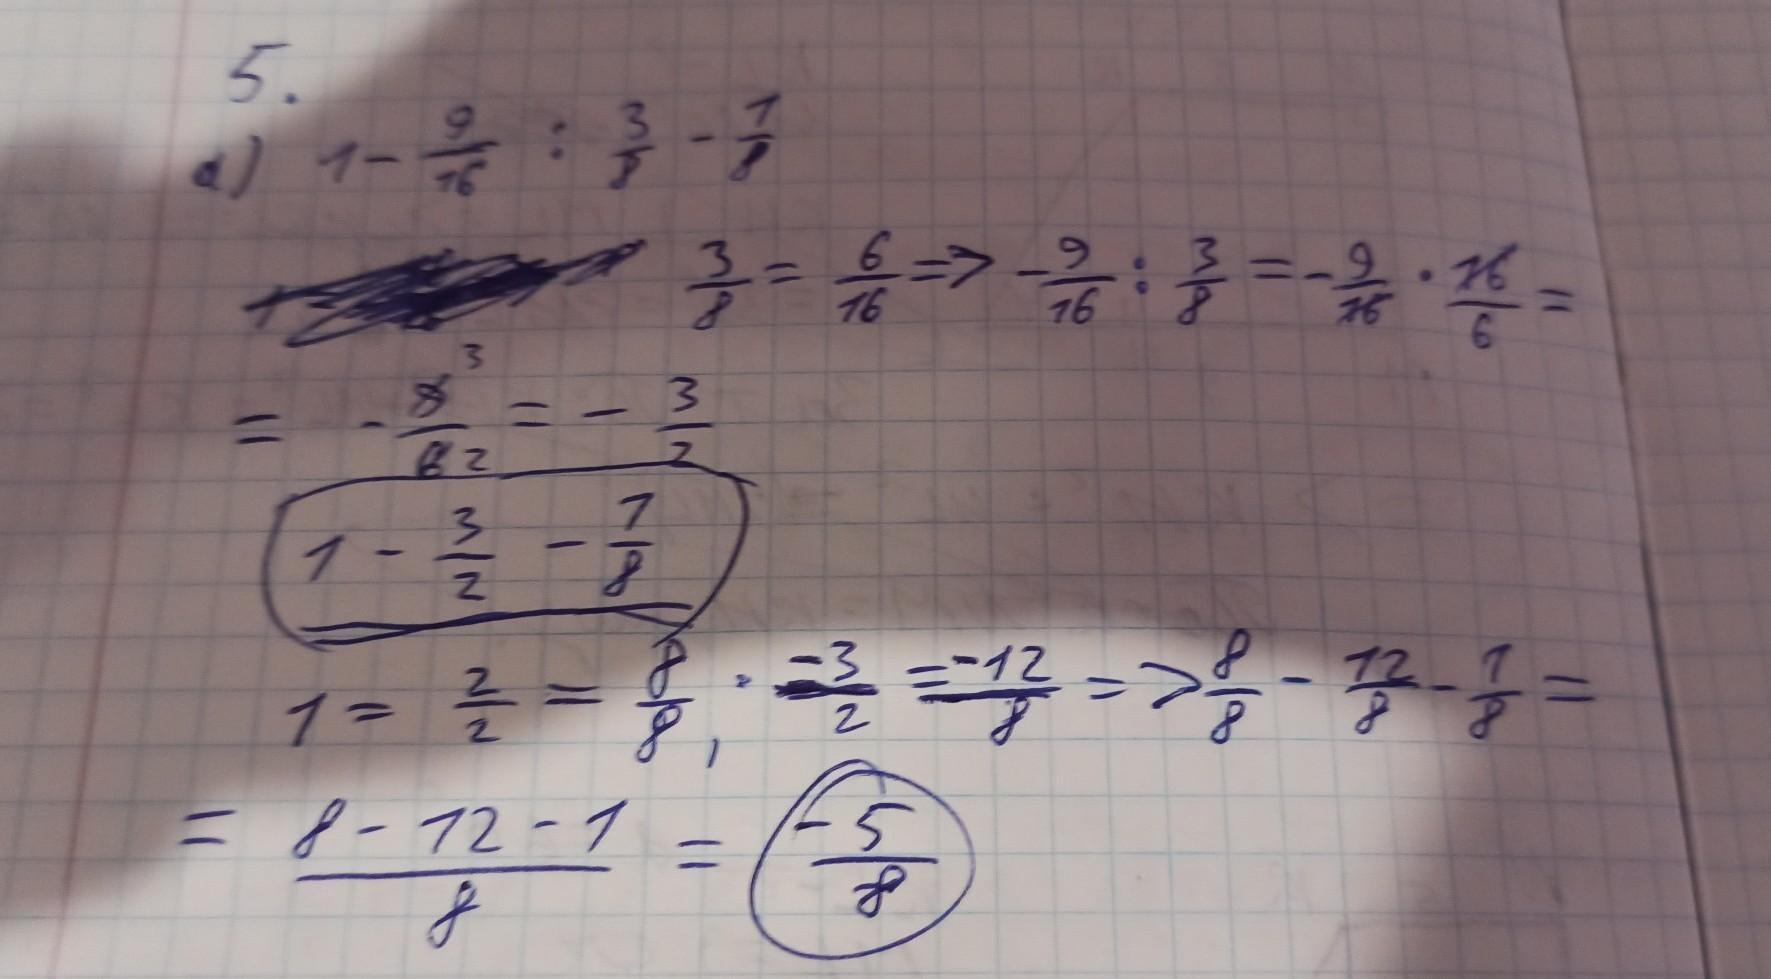 5.
a) 1 - 9/16 : 3/8 - 1/8
3/8 = 6/16 => -9/16 : 3/8 = -9/16 · 16/6 =
= -9/6 3 2 = - 3/2
1 - 3/2 - 1/8
1 = 2/2 = 8/8, · -3/2 = -12/8 => 8/8 - 12/8 - 1/8 =
= 8 - 12 - 1/8 = -5/8